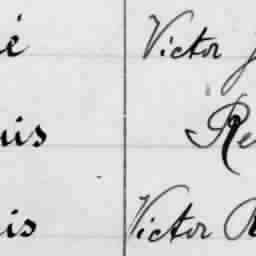 é Victor J
uis Re
is Victor R